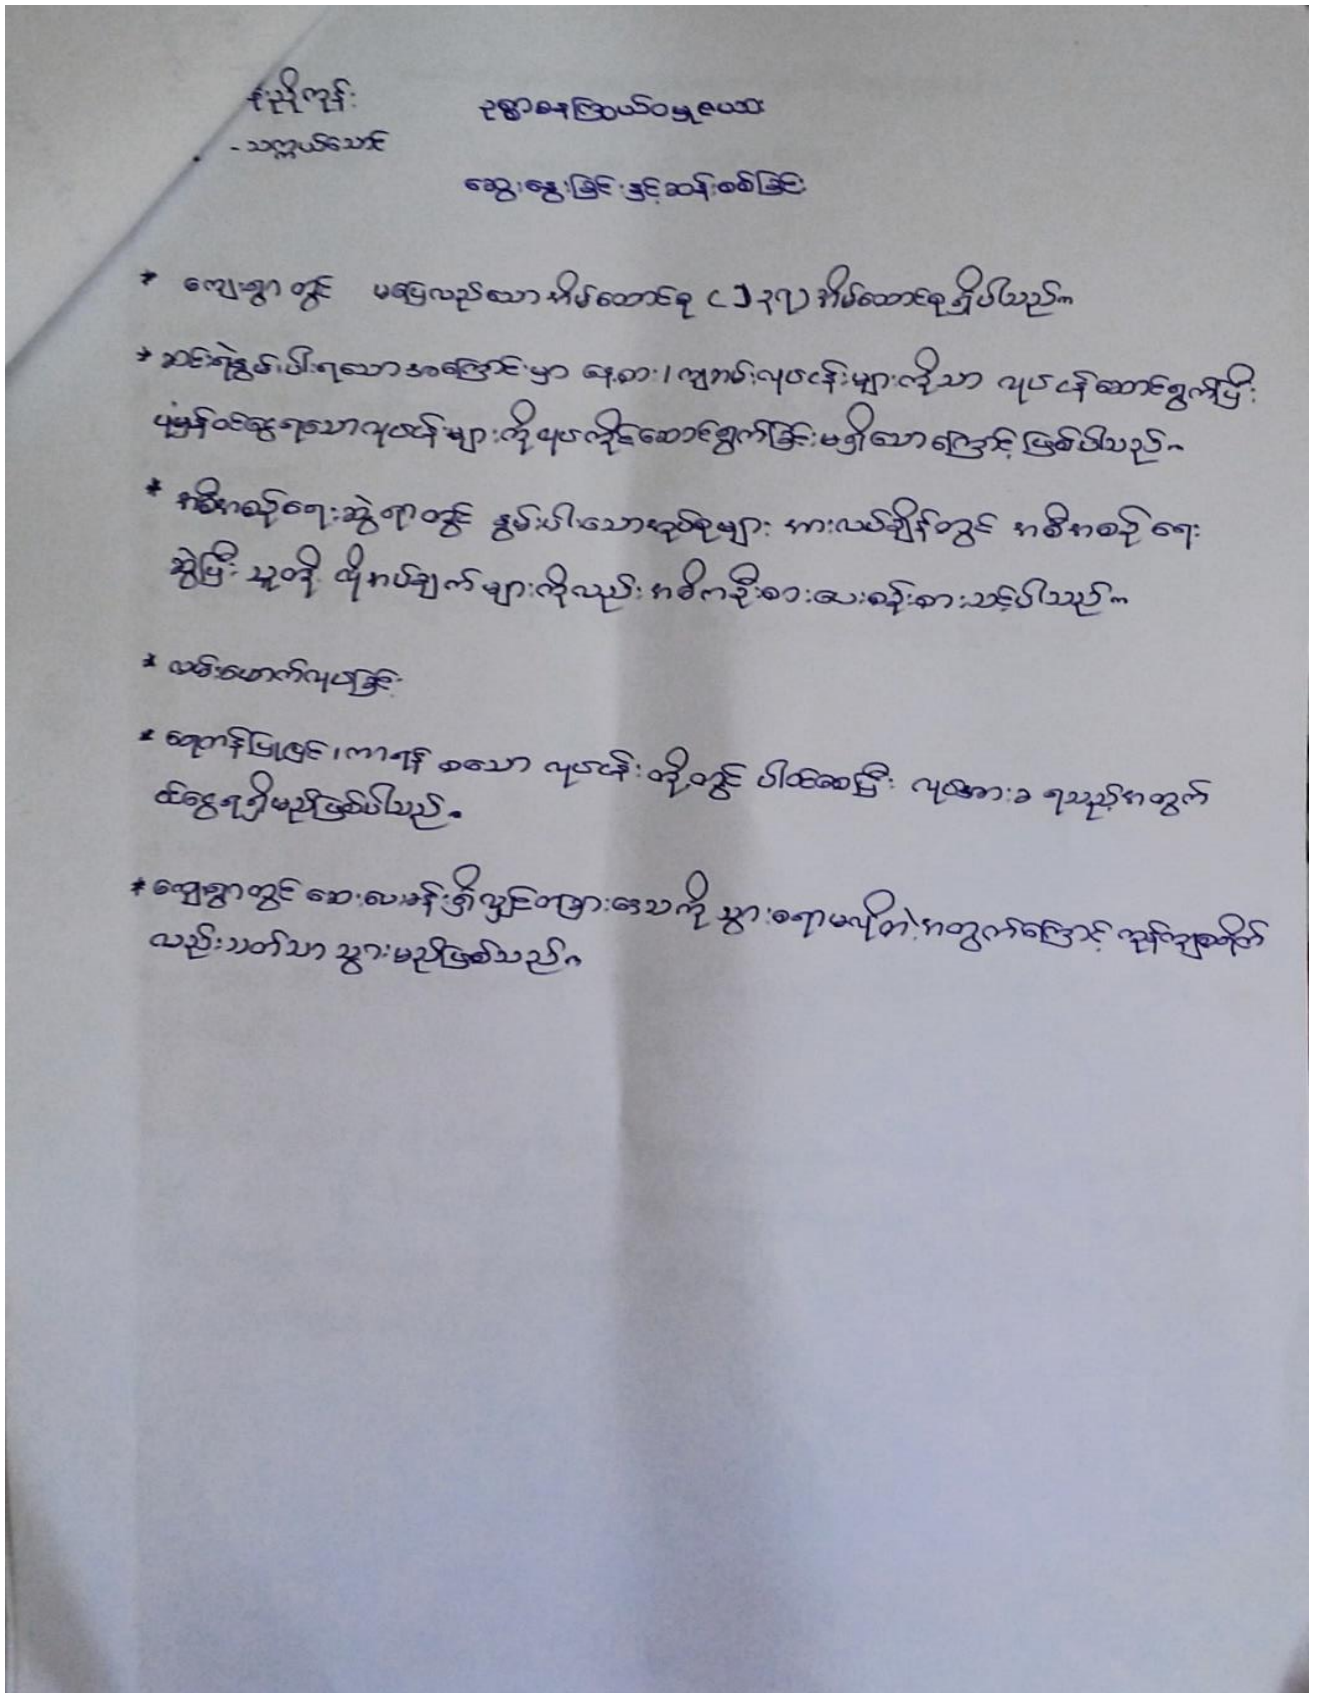 နုံးညိုကုန်း
ဥစ္စာဓနကြွယ်ဝမှုဇယား
- သက္ကယ်သောင်
ဆွေးနွေးခြင်းနှင့်ဆန်းစစ်ခြင်း
* ကျေးရွာတွင် မပြေလည်သောအိမ်ထောင်စု ( ) အိမ်ထောင်စုရှိပါသည်။
* ဆင်းရဲနွမ်းပါးရသောအကြောင်းမှာ နေ့စား၊ကျဘမ်းလုပငန်းများကိုသာ လုပငန်ဆောင်ရွက်ပြီး
ပုံမှန်ဝင်ငွေရသောလုပငန်းများကိုလုပကိုင်ဆောင်ရွက်ခြင်းမရှိသောကြောင့်ဖြစ်ပါသည်။
* အစီအစဉ်ရေးဆွဲရာတွင် နွမ်းပါးသောအုပ်စုများ အားလပ်ချိန်တွင် အစီအစဉ်ရေး
ဆွဲပြီး သူတို့ လိုအပ်ချက်များကိုလည်း စားပေးစဉ်းစားသင့်ပါသည်။
* လမ်းဖောက်လုပခြင်း
* ရေကန်ပြုပြင်၊ကာရန် စသော လုပငန်းတို့တွင် ပါဝင်စေပြီး လုပအားခ ရသည့်အတွက်
ဝင်ငွေရရှိမည်ဖြစ်ပါသည်။
* ကျေးရွာတွင် ဆေးပေးခန်းရှိလျှင်တခြားဒေသကို သွားစရာမလိုတဲ့အတွက်ကြောင့် ကုန်ကျစရိတ်
လည်းသက်သာ သွားမည်ဖြစ်သည်။